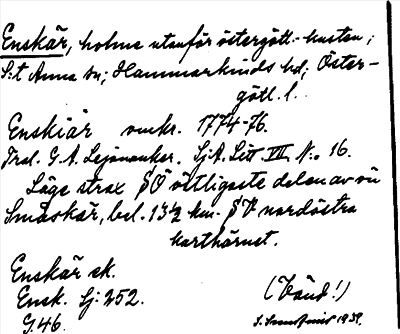 Enskär, holme utanför östergötl.-kusten;
S:t Anna sn; Hammarkinds hd; Öster-
götl. l.
Enskiär omkr. 1774-76.
G. A. Lejonanker. SjA. Litt. VII N:o 16.
Läge strax SO östligaste delen av ön
Småskär, bel. 13½ km. SV nordöstra
karthörnet.
Enskär ek.
Ensk. Sj. 252.
G.46.
(Vänd!)
1939.